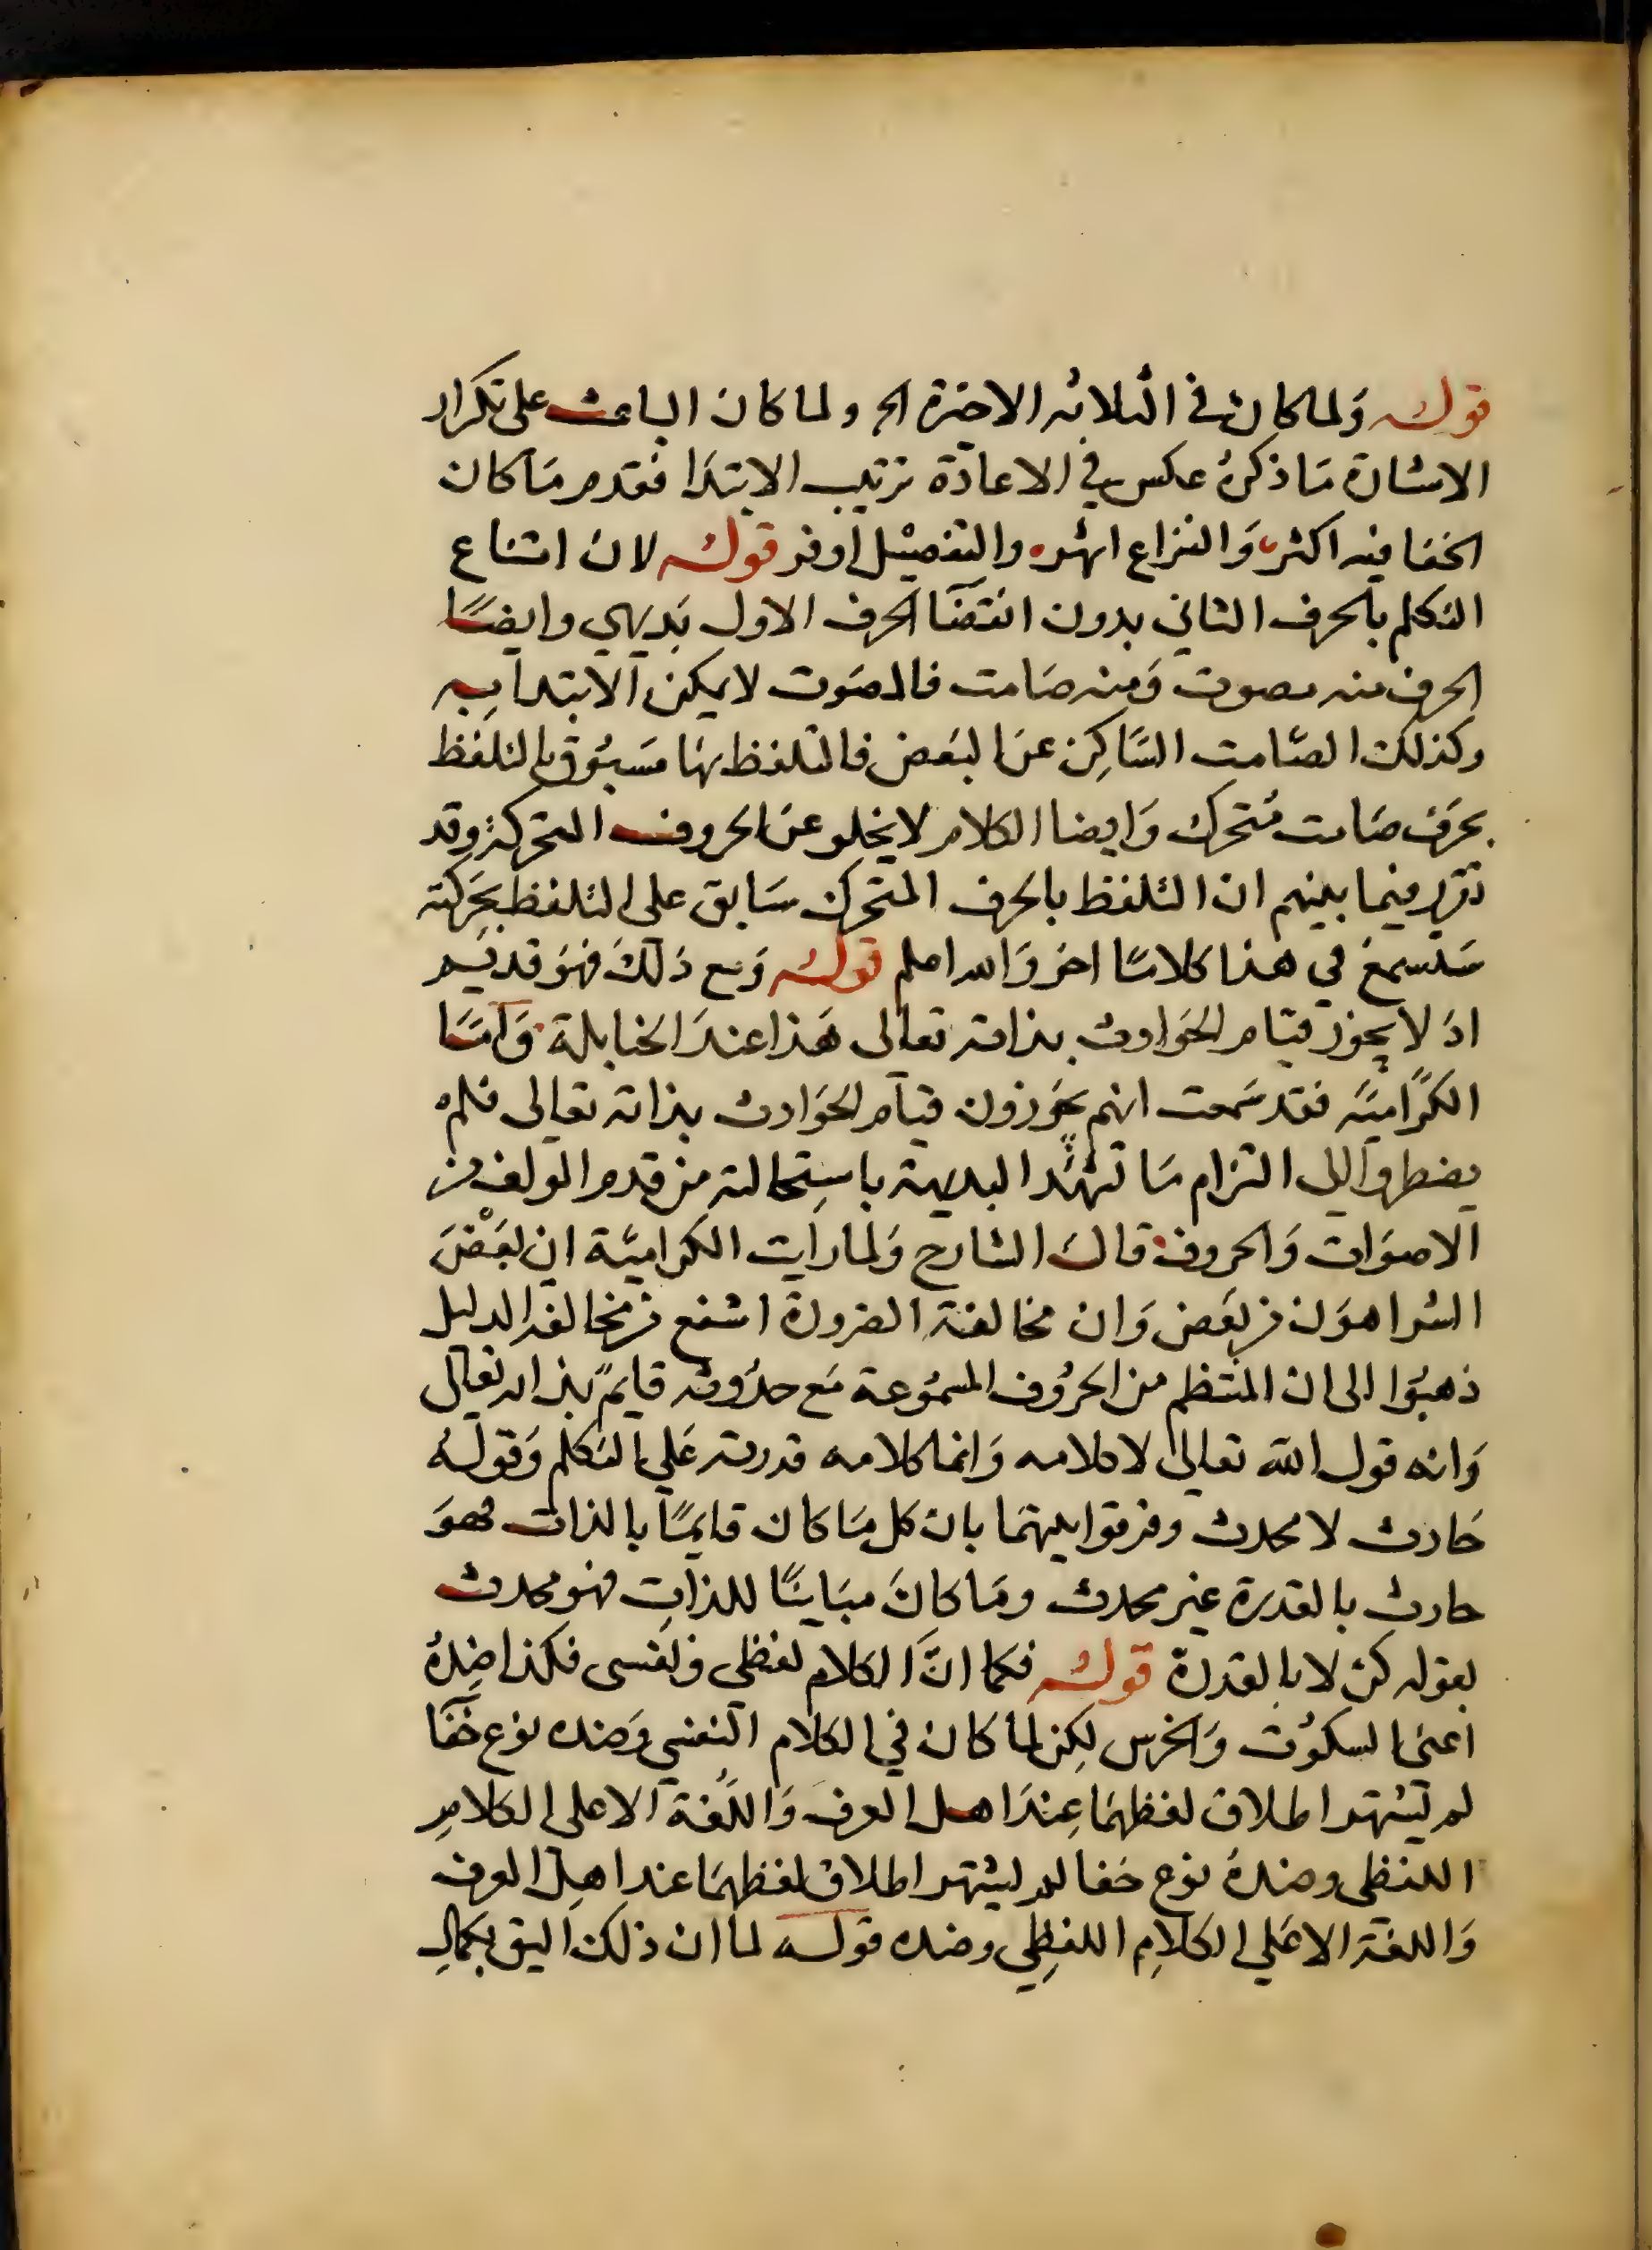 قوله ولما كان في الثلاثه الاخيرة الخ ولما كان الباعث على تكرار
الاشارة ما ذكره عكس في الاعادة ترتيب الابتدا فقدم ما كان
الخفا فيه اكثر والنزاع اشهر والتفصيل اوفر قوله لان امتناع
التكلم بالحرف الثاني بدون انتضا الحرف الاول بديهي وايضا
الحرف منه مصوت ومنه صامت فالمصوت لا يمكن الابتدا به
وكذلك الصامت الساكن عن البعض فالتلفظ بهما مسبوق بالتلفظ
بحرف صامت متحرك وايضا الكلام لا يخلو عن الحروف المتحركة وقد
تقرر فيما بينهم ان التلفظ بالحرف المتحرك سابق على التلفظ بحركته
ستسمع في هذا كلاما اخر والله اعلم قوله ومع ذلك فهو قديم
اذ لا يجوز قيام الحوادث بذاته تعالى هذا عند الحنابلة واما
الكرامية فقد سمعت انهم يجوزون قيام الحوادث بذاته تعالى فلم
يضطروا الى التزام ما تشهد البديهة باستحالته من قدم المولف من
الاصوات والحروف قال الشارح ولما رات الكرامية ان بعض
الشر اهون من بعض وان مخالفة الضرورة اشنع من مخالفة الدليل
ذهبوا الى ان المنتظم من الحروف المسموعة مع حدوثه قايم بذاته تعالى
وانه قول الله تعالى لا كلامه وانما كلامه قدرته على التكلم وقوله
حادث لا محدث وفرقوا بينهما بان كل ما كان قايما بالذات فهو
حادث بالقدرة غير محدث وما كان مباينا للذات فهو محدث
بقوله كن لا بالقدرة قوله فكما ان الكلام لفظي ونفسي فكذا ضده
اعني السكوت والخرس لكن لما كان في الكلام النفسي وضده نوع خفا
لم يشتهر اطلاق لفظهما عند اهل العرف واللغة الا على الكلام
اللفظي وضده نوع خفا لم يشتهر اطلاق لفظهما عند اهل العرف
واللغة الا على الكلام اللفظي وضده قوله لما ان ذلك اليق بكمال